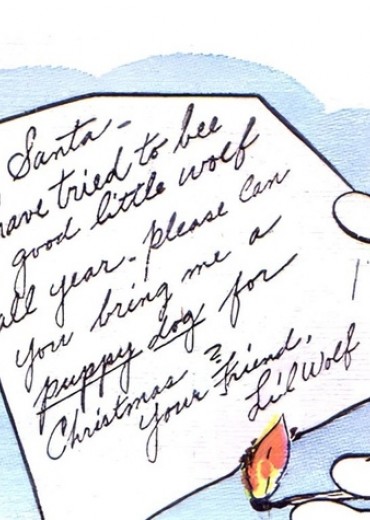 Santa-
have tried to bee
good little wolf
all year - please can
you bring me a
puppy dog for
Christmas?
your Friend,
Li'l Wolf